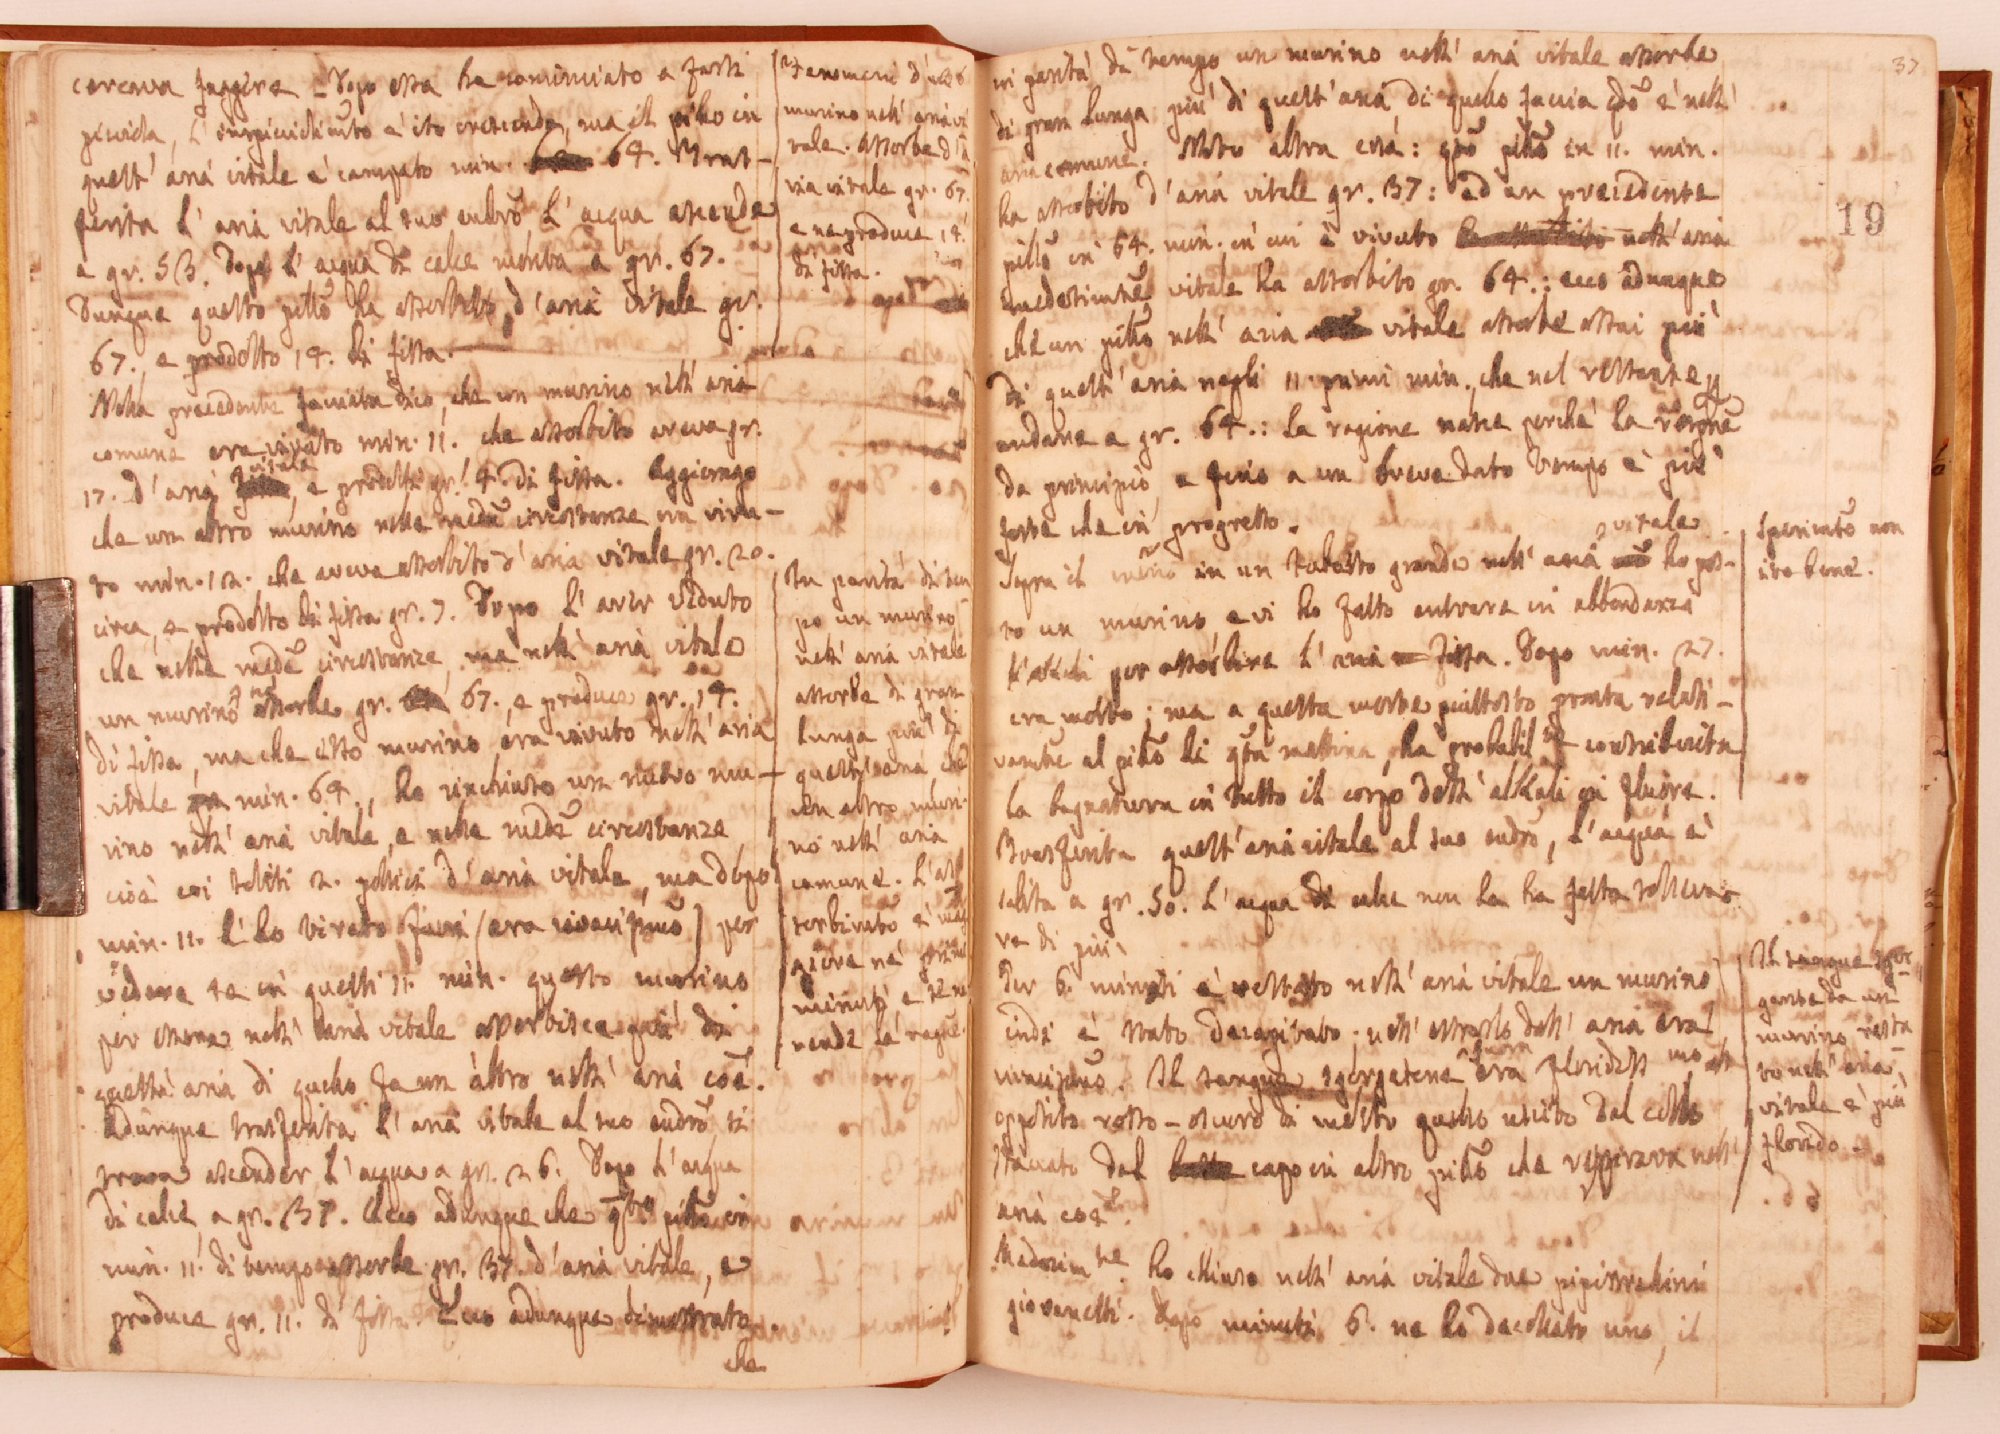 cercava fuggire – Dopo essa ha cominciato a farsi
placida, l'
quest' aria vitale è campato min. 64. Tras-
ferita l' aria vitale al suo eudrõ, l' acqua ascende
a gr. 53. Dopo l' acqua di calce monta a gr. 67.
Dunque questo pillõ ha assorbito d' aria vitale gr.
67., e prodotto 14. di fissa.
Nella precedente facciata dico, che un murino nell' aria
comune era vivuto min. 11. che assorbito aveva gr.
17. d' aria vitale, e prodotti gr. 4. di fissa. Aggiungo
che un altro murino nelle medẽ circostanze era vivu-
to min. 12. che aveva assorbito d' aria vitale gr. 20.
circa, e prodotto di fissa gr. 7. Dopo l' aver veduto
che nelle medẽ circostanze, ma nell' aria vitale
un murino assorbe gr. 67., e produce gr. 14.
di fissa, ma che esso murino era vivuto nell' aria
vitale min. 64., ho rinchiuso un nuovo mu-
rino nell' aria vitale, e nelle medẽ circostanze
cioè coi soliti 2. pollici d' aria vitale, ma dopo
min. 11. l' ho tirato fuori (era vivacissimõ) per
vedere se in quelli 11. min. questo murino
per essere nell' aria vitale assorbisca più di
quest' aria di quello fa un altro nell' aria coẽ.
Adunque trasferita l' aria vitale al suo eudrõ si
trova ascender l' acqua a gr. 26. Dopo l' acqua
di calce, a gr. 37. Ecco adunque che qto pillõ in
min. 11. di tempo assorbe gr. 37. d' aria vitale, e
produce gr. 11. di fissa. Ecco adunque dimostrato
che
Fenomeni d' un
murino nell' aria vi
tale. Assorbe d'
ria vitale gr. 67.
e ne produce 14.
di fissa.
In parità di tem
po un murino
nell' aria vitale
assorbe di gran
lunga più di
quest' aria, che
un altro muri-
no nell' aria
comune. L' as
sorbimtõ è mag
giore ne' primi
minuti e se ne
rende la ragne.
37
19
in parità di tempo un murino nell' aria vitale assorbe
di gran lunga più di quest' aria, di quello faccia qdõ è nell'
aria comune. Noto altra cosa: qto pillõ in 11. min.
ha assorbito d' aria vitale gr. 37: ed un precedente
pillõ in 64. min. in cui è vivuto nell' aria
medesimtẽ vitale ha assorbito gr. 64.: ecco adunque
che un pillõ nell' aria vitale assorbe assai più
di quest' aria negli 11. primi min., che nel restante
andare a gr. 64.: la ragione nasce perchè la
da principio, e fino a un breve dato tempo è più
forte che in progresso.
Sopra il in un tubetto grande nell' aria vitale ho pos-
to un murino e vi ho fatto entrare in abbondanza
l' alkali per assorbire l' aria fissa. Dopo min. 27.
era morto; ma a questa morte piuttosto pronta relati-
vamtẽ al pillõ di qta mattina, ha probabiltẽ contribuita
la bagnatura in tutto il corpo dell' alkali in fluore.
Trasferita quest' aria vitale al suo eudrõ, l' acqua è
salita a gr. 50. L' acqua di calce non la ha fatta solleva-
re di più.
Per 6. minuti è restato nell' aria vitale un murino
indi è stato decapitato. nell' estrarlo dall' aria era
vivacissmõ. Il sangue sgorgatone era floridissmo, all'
opposito rosso-oscuro di molto quello uscito dal collo
staccato dal capo in altro pillõ che respirava nell'
aria coẽ.
Medesimte ho chiuso nell' aria vitale due pipistrelini
giovanetti. Dopo minuti 6. ne ho decollato uno, il
Sperimtõ non
ito bene.
Il sangue sgor-
gante da un
murino resta
to nell' aria
vitale è più
florido.